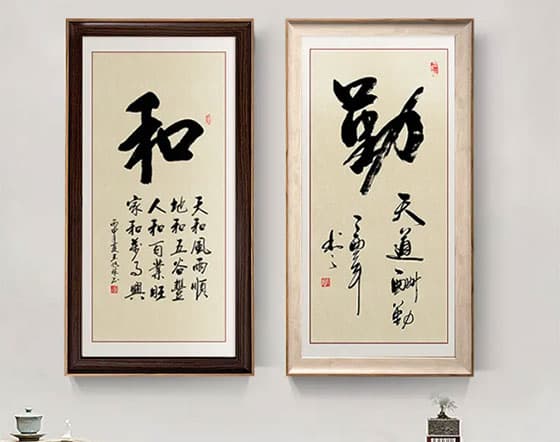 和
天和風雨順
地和五谷豐
人和百業旺
家和萬事興
勤
天道酬勤